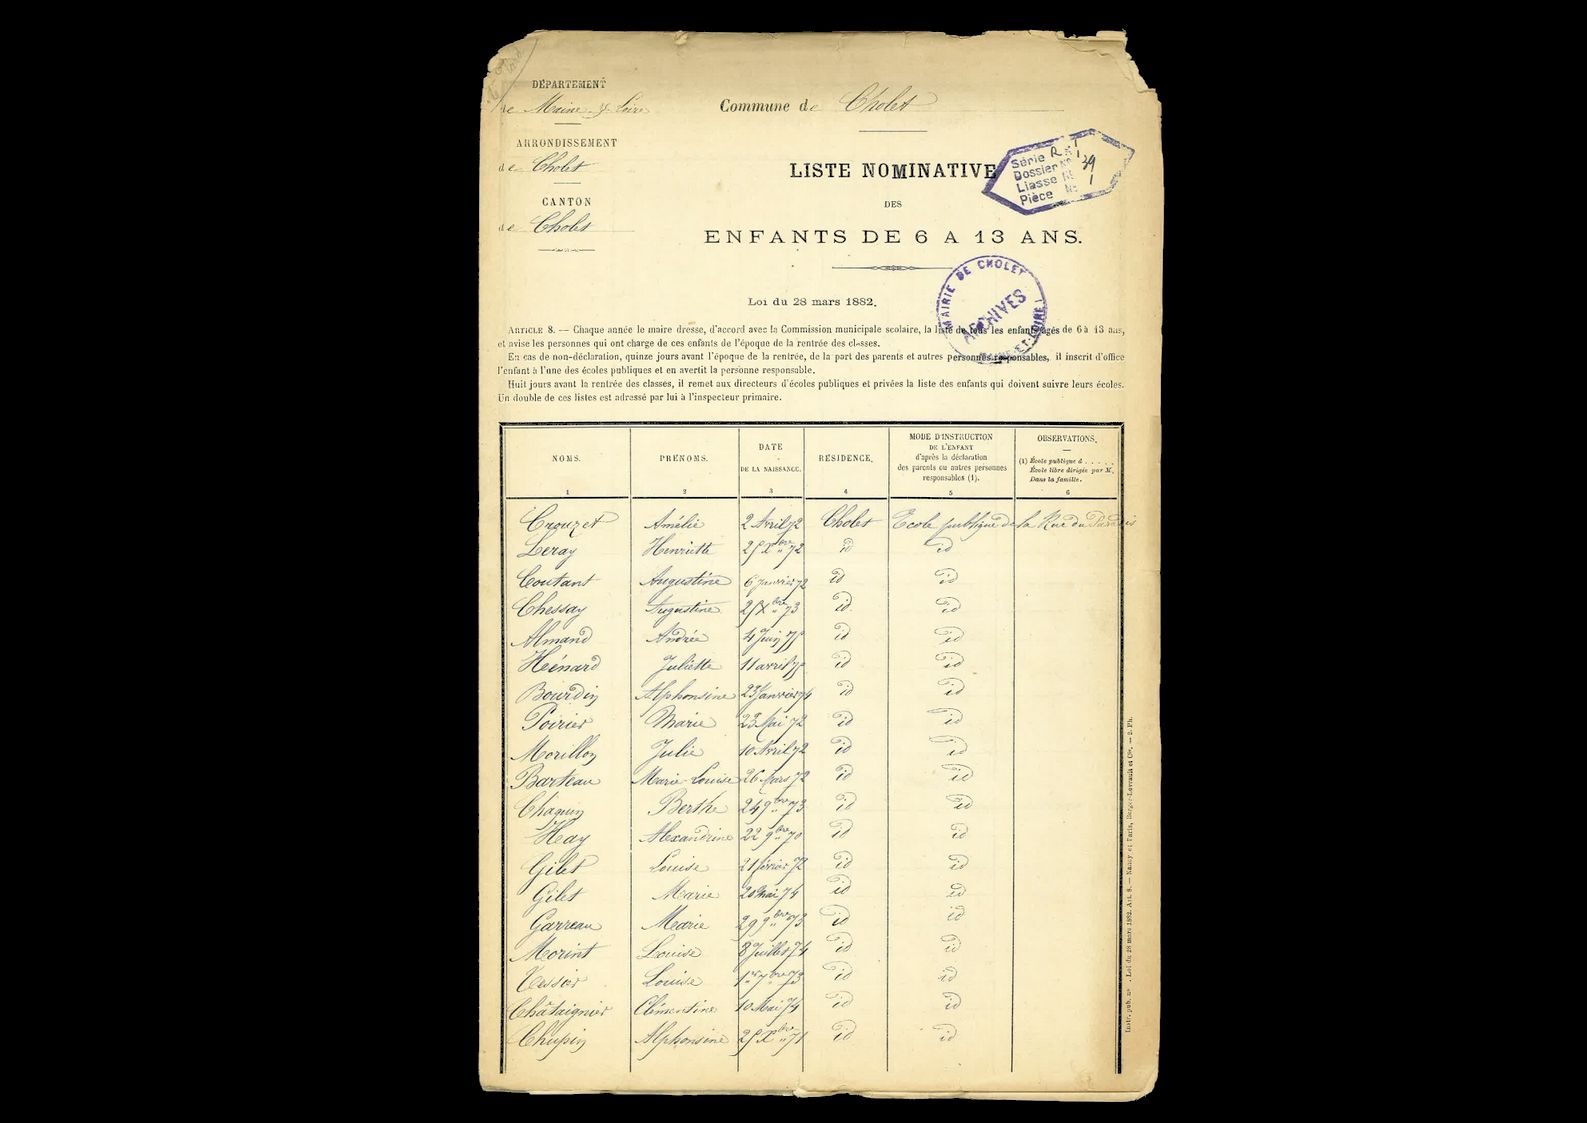 DÉPARTEMENT
de Maine & Loire
Commune de Cholet
ARRONDISSEMENT
de Cholet
CANTON
de Cholet
LISTE NOMINATIVE
DES
ENFANTS DE 6 A 13 ANS.
Série R
Dossier No 39
Liasse No 1
Pièce No
MAIRIE DE CHOLET
ARCHIVES
MAINE-ET-LOIRE
Loi du 28 mars 1882.
ARTICLE 8. — Chaque année le maire dresse, d'accord avec la Commission municipale scolaire, la liste de tous les enfants âgés de 6 à 13 ans,
et avise les personnes qui ont charge de ces enfants de l'époque de la rentrée des classes.
En cas de non-déclaration, quinze jours avant l'époque de la rentrée, de la part des parents et autres personnes responsables, il inscrit d'office
l'enfant à l'une des écoles publiques et en avertit la personne responsable.
Huit jours avant la rentrée des classes, il remet aux directeurs d'écoles publiques et privées la liste des enfants qui doivent suivre leurs écoles.
Un double de ces listes est adressé par lui à l'inspecteur primaire.
NOMS. PRÉNOMS. DATE DE LA NAISSANCE. RÉSIDENCE. MODE D'INSTRUCTION DE L'ENFANT d'après la déclaration des parents ou autres personnes responsables (1). OBSERVATIONS.
(1) École publique d . . . . .
École libre dirigée par M.
Dans la famille.
1 2 3 4 5 6
Crouzet Amélie 2 Avril 72 Cholet Ecole publique de la Rue du Paradis
Leray Henriette 25 Xbre 72 id id
Coutant Augustine 6 janvier 72 id id
Chessay Augustine 25 Xbre 73 id id
Almand Andrée 4 Juin 75 id id
Hénard Juliette 11 avril 75 id id
Bourdin Alphonsine 23 Janvier 74 id id
Poirier Marie 23 Mai 72 id id
Morillon Julie 10 Avril 72 id id
Barteau Marie-Louise 26 Mars 72 id id
Chaquin Berthe 24 9bre 73 id id
Hay Alexandrine 22 9bre 70 id id
Gilet Louise 21 février 72 id id
Gilet Marie 20 mai 74 id id
Garreau Marie 29 9bre 73 id id
Morint Louise 8 Juillet 74 id id
Tessier Louise 1er 7bre 73 id id
Châtaignier Clémentine 10 Mai 74 id id
Chupin Alphonsine 25 Xbre 71 id id
Instr. pub. no . Loi du 28 mars 1882. Art. 8. — Nancy et Paris, Berger-Levrault et Cie. — 2. Ph.